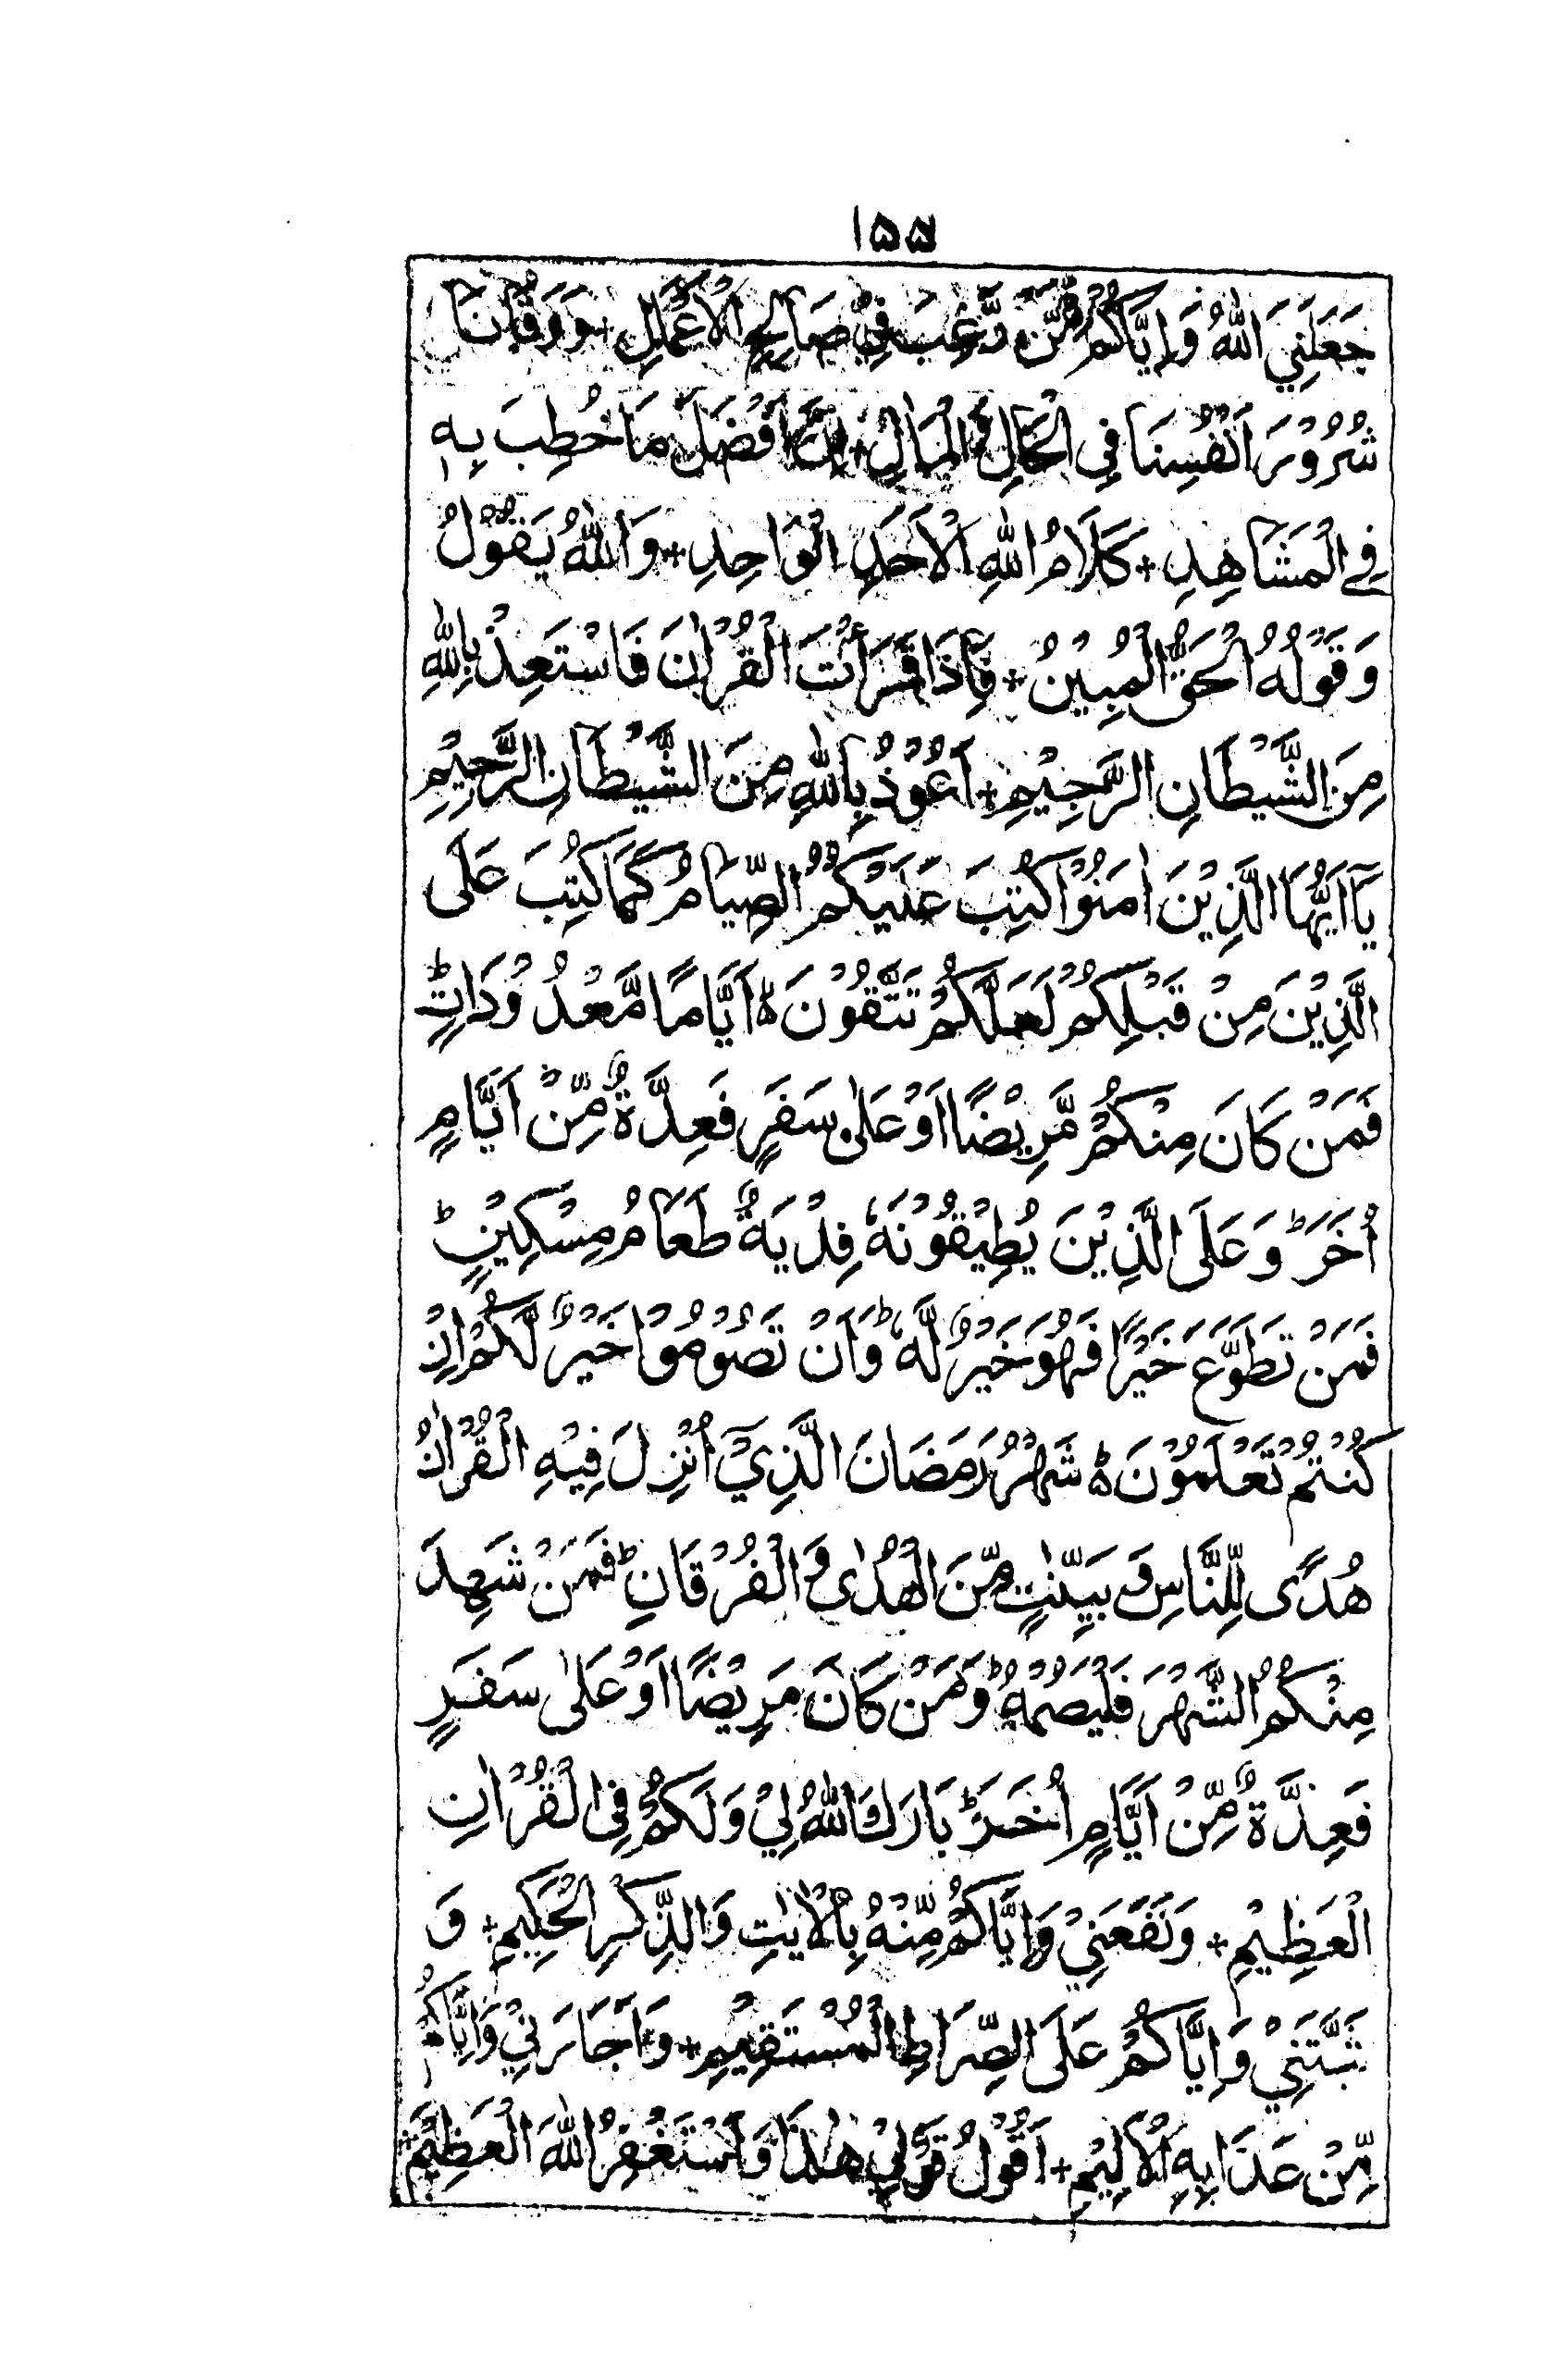 ١٥٥
جَعَلَنِيَ اللّٰهُ وَإِيَّاكُمْ مِمَّنْ رَّغِبَ فِيْ صَالِحِ الْأَعْمَالِ + وَوَقَانَا
شُرُوْرَ اَنْفُسِنَا فِي الْحَالِ وَالْمَاٰلِ + اِنَّ اَفْضَلَ مَا خُطِبَ بِهٖ
فِي الْمَشَاهِدِ + كَلَامُ اللّٰهِ الْاَحَدِ الْوَاحِدِ + وَاللّٰهُ يَقُوْلُ
وَقَوْلُهُ الْحَقُّ الْمُبِيْنُ + فَإِذَا قَرَأْتَ الْقُرْاٰنَ فَاسْتَعِذْ بِاللّٰهِ
مِنَ الشَّيْطَانِ الرَّجِيْمِ + اَعُوْذُ بِاللّٰهِ مِنَ الشَّيْطَانِ الرَّجِيْمِ
يَآ اَيُّهَا الَّذِيْنَ اٰمَنُوْا كُتِبَ عَلَيْكُمُ الصِّيَامُ كَمَا كُتِبَ عَلَى
الَّذِيْنَ مِنْ قَبْلِكُمْ لَعَلَّكُمْ تَتَّقُوْنَ ۙ اَيَّامًا مَّعْدُوْدَاتٍ ؕ
فَمَنْ كَانَ مِنْكُمْ مَّرِيْضًا اَوْ عَلٰى سَفَرٍ فَعِدَّةٌ مِّنْ اَيَّامٍ
اُخَرَ ؕ وَعَلَى الَّذِيْنَ يُطِيْقُوْنَهٗ فِدْيَةٌ طَعَامُ مِسْكِيْنٍ ؕ
فَمَنْ تَطَوَّعَ خَيْرًا فَهُوَ خَيْرٌ لَّهٗ ؕ وَاَنْ تَصُوْمُوْا خَيْرٌ لَّكُمْ اِنْ
كُنْتُمْ تَعْلَمُوْنَ ه شَهْرُ رَمَضَانَ الَّذِيْٓ اُنْزِلَ فِيْهِ الْقُرْاٰنُ
هُدًى لِّلنَّاسِ وَ بَيِّنٰتٍ مِّنَ الْهُدٰى وَالْفُرْقَانِ ؕ فَمَنْ شَهِدَ
مِنْكُمُ الشَّهْرَ فَلْيَصُمْهُ ؕ وَمَنْ كَانَ مَرِيْضًا اَوْ عَلٰى سَفَرٍ
فَعِدَّةٌ مِّنْ اَيَّامٍ اُخَرَ ؕ بَارَكَ اللّٰهُ لِيْ وَلَكُمْ فِي الْقُرْاٰنِ
الْعَظِيْمِ + وَنَفَعَنِيْ وَإِيَّاكُمْ مِّنْهُ بِالْاٰيٰتِ وَالذِّكْرِ الْحَكِيْمِ + وَ
ثَبَّتَنِيْ وَاِيَّاكُمْ عَلَى الصِّرَاطِ الْمُسْتَقِيْمِ + وَاَجَارَنِيْ وَاِيَّاكُمْ
مِّنْ عَذَابِهِ الْاَلِيْمِ + اَقُوْلُ قَوْلِيْ هٰذَا وَاَسْتَغْفِرُ اللّٰهَ الْعَظِيْمَ +